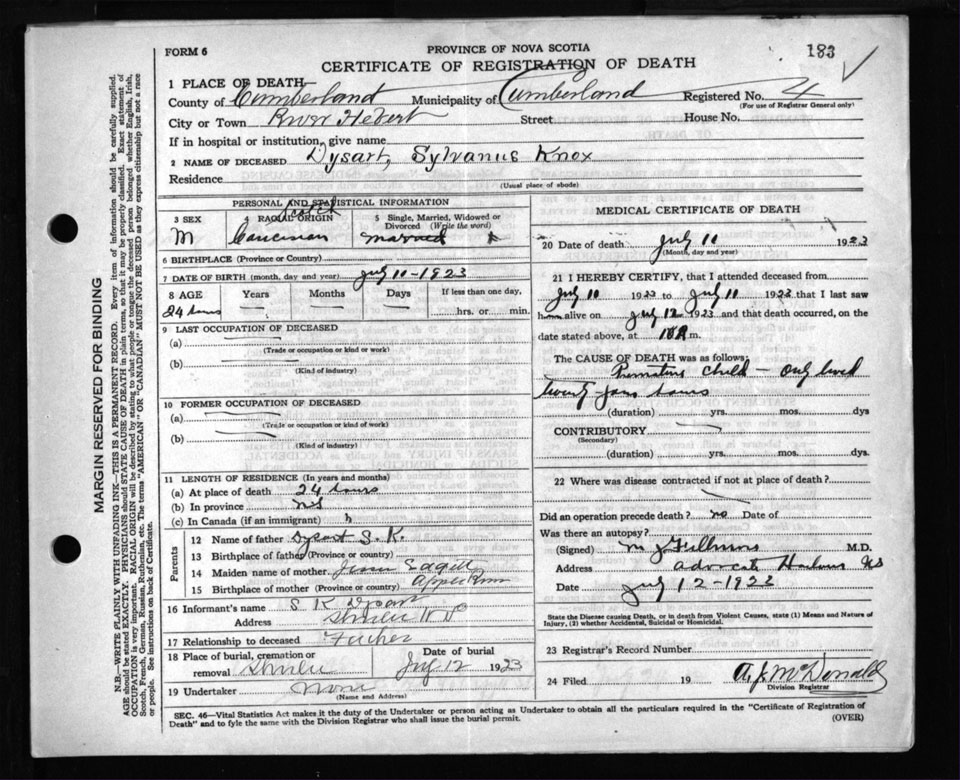 FORM 6
PROVINCE OF NOVA SCOTIA
183
CERTIFICATE OF REGISTRATION OF DEATH
1 PLACE OF DEATH
County of Cumberland Municipality of Cumberland Registered No. 4
(For use of Registrar General only)
City or Town River Hebert Street House No.
If in hospital or institution, give name
2 NAME OF DECEASED Dysart, Sylvanus Knox
Residence
(Usual place of abode)
PERSONAL AND STATISTICAL INFORMATION
3 SEX
M
4 RACIAL ORIGIN
Scotch
5 Single, Married, Widowed or Divorced (Write the word)
6 BIRTHPLACE (Province or Country)
7 DATE OF BIRTH (month, day and year) July 11-1923
8 AGE Years Months Days If less than one day,
24 hours — — — hrs. or min.
9 LAST OCCUPATION OF DECEASED
(a)
(Trade or occupation or kind of work)
(b)
(Kind of industry)
10 FORMER OCCUPATION OF DECEASED
(a)
(Trade or occupation or kind of work)
(b)
(Kind of industry)
11 LENGTH OF RESIDENCE (In years and months)
(a) At place of death 24 hours
(b) In province
(c) In Canada (if an immigrant)
Parents
12 Name of father Dysart S. K.
13 Birthplace of father (Province or country)
14 Maiden name of mother
15 Birthplace of mother (Province or country)
16 Informant's name S K Dysart
Address Shulie N S
17 Relationship to deceased Father
18 Place of burial, cremation or removal Shulie
Date of burial July 12 1923
19 Undertaker None
(Name and Address)
MEDICAL CERTIFICATE OF DEATH
20 Date of death July 11 1923
(Month, day and year)
21 I HEREBY CERTIFY, that I attended deceased from
July 11 1923 to July 11 1923 that I last saw
him alive on July 12 1923 and that death occurred, on
date stated above, at m.
The CAUSE OF DEATH was as follows:
Premature child — only lived
twenty four hours
(duration) yrs. mos. dys
CONTRIBUTORY
(Secondary)
(duration) yrs. mos. dys.
22 Where was disease contracted if not at place of death?
Did an operation precede death? no Date of
Was there an autopsy?
(Signed) M.D.
Address Advocate Harbour NS
Date July 12-1923
State the Disease causing Death, or in death from Violent Causes, state (1) Means and Nature of
Injury, (2) whether Accidental, Suicidal or Homicidal.
23 Registrar's Record Number
24 Filed 19 A. J. McDonald
Division Registrar
SEC. 46—Vital Statistics Act makes it the duty of the Undertaker or person acting as Undertaker to obtain all the particulars required in the "Certificate of Registration of
Death" and to fyle the same with the Division Registrar who shall issue the burial permit.
(OVER)
MARGIN RESERVED FOR BINDING
N.B.—WRITE PLAINLY WITH UNFADING INK—THIS IS A PERMANENT RECORD. Every item of information should be carefully supplied.
AGE should be stated EXACTLY. PHYSICIANS should STATE CAUSE OF DEATH in plain terms, so that it may be properly classified. Exact statement of
OCCUPATION is very important. RACIAL ORIGIN will be described by stating to what people or tongue the deceased person belonged whether English, Irish,
Scotch, French, German, Russian, Ruthenian, etc. The terms "AMERICAN" OR "CANADIAN" MUST NOT BE USED as they express citizenship but not a race
or people. See instructions on back of Certificate.